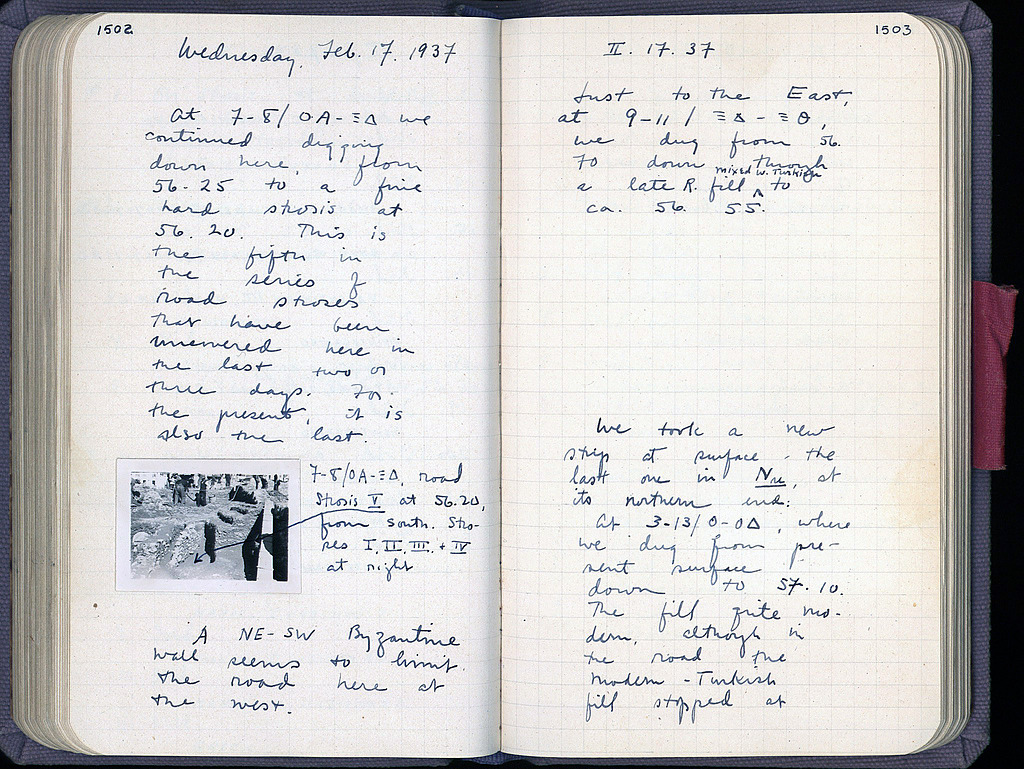 1502
Wednesday, Feb. 17. 1937
At 7-8/ΟΑ-ΞΔ we
continued digging
down here, from
56.25 to a fine
hard strosis at
56.20. This is
the fifth in
the series of
road stroses
that have been
uncovered here in
the last two or
three days. For
the present, it is
also the last.
7-8/ΟΑ-ΞΔ, road
Strosis V at 56.20,
from South. Stro-
ses I, II, III, + IV
at right
A NE-SW Byzantine
wall seems to limit
the road here at
the west.
1503
II. 17. 37
Just to the East,
at 9-11/ΞΔ-ΞΘ,
we dug from 56.
70 down through
a late R. fill ^ mixed w. Turkish to
ca. 56. 55.
We took a new
strip at surface - the
last one in Nu, at
its northern end:
At 3-13/Ο-ΟΔ, where
we dug from pre-
sent surface
down to 57.10.
The fill quite mo-
dern, although in
the road the
modern-Turkish
fill stopped at